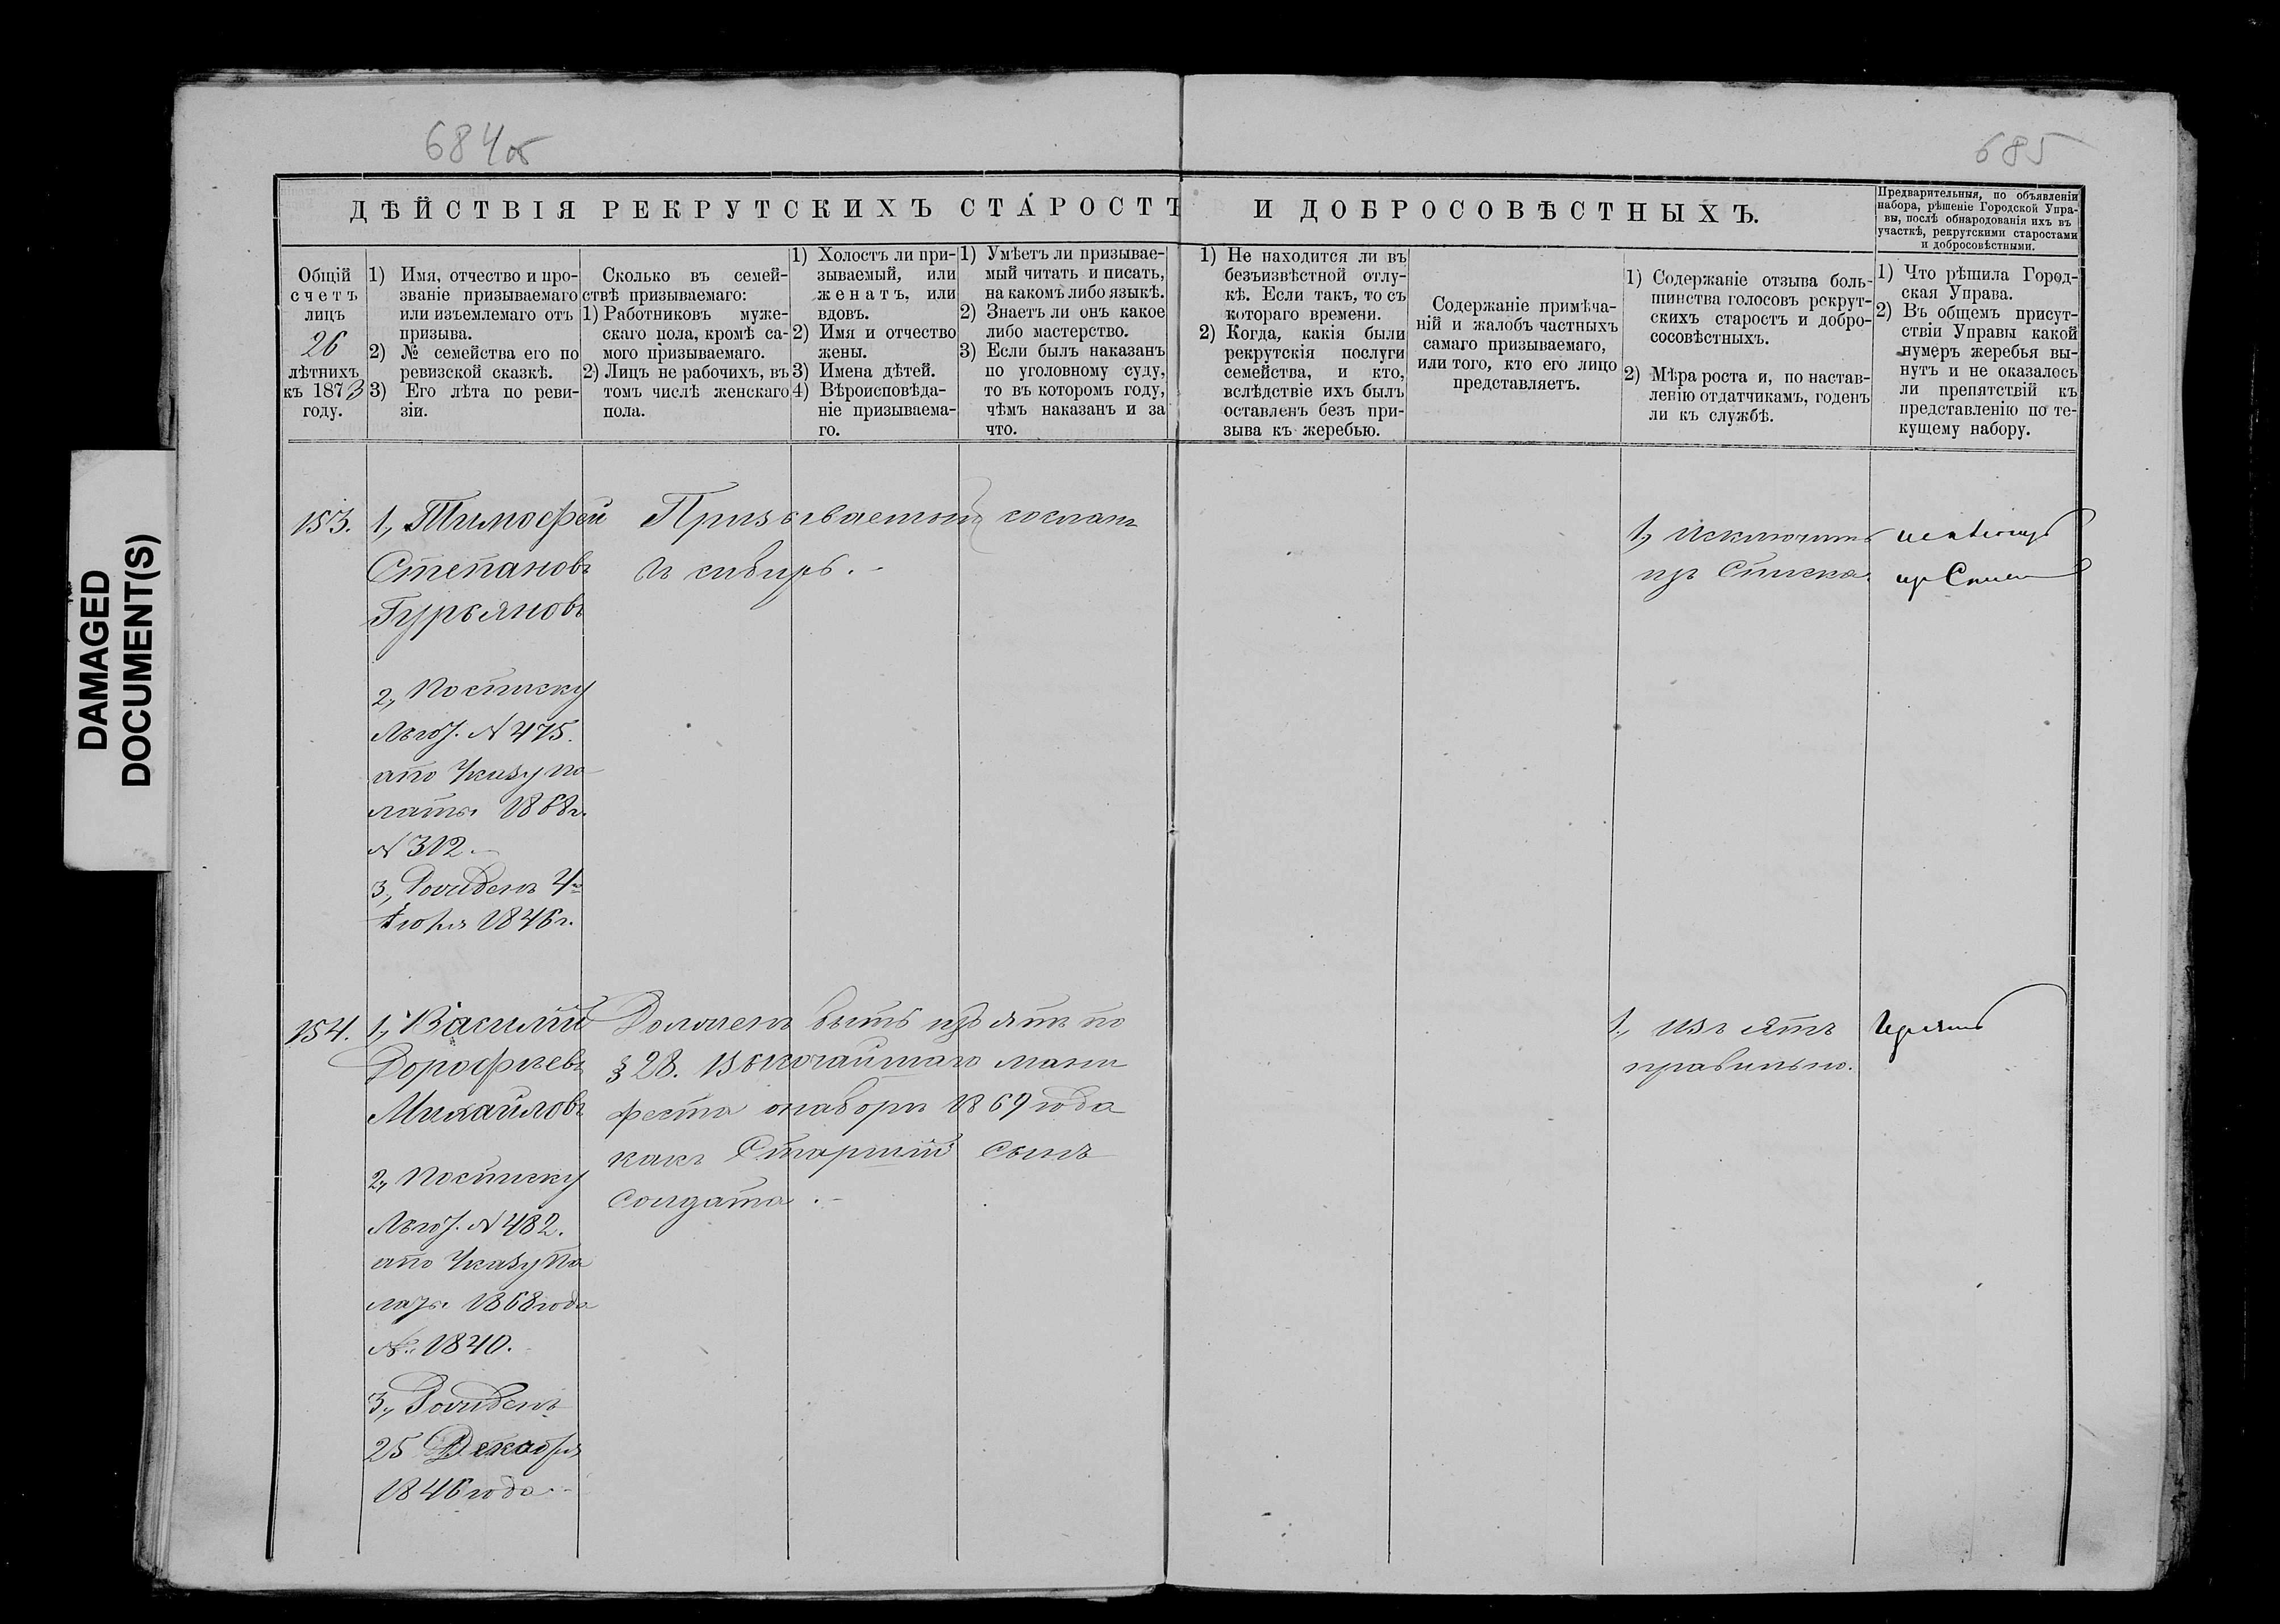 684об
685
ДѢЙСТВІЯ РЕКРУТСКИХЪ СТАРОСТЪ И ДОБРОСОВѢСТНЫХЪ.
Предварительныя, по объявленіи
набора, рѣшеніе Городской Упра-
вы, послѣ обнародованія ихъ въ
участкѣ, рекрутскими старостами
и добросовѣстными.
Общій
счетъ
лицъ
26
лѣтнихъ
къ 1873
году.
1) Имя, отчество и про-
званіе призываемаго
или изъемлемаго отъ
призыва.
2) № семейства его по
ревизской сказкѣ.
3) Его лѣта по реви-
зіи.
Сколько въ семей-
ствѣ призываемаго:
1) Работниковъ муже-
скаго пола, кромѣ са-
мого призываемаго.
2) Лицъ не рабочихъ, въ
томъ числѣ женскаго
пола.
1) Холостъ ли при-
зываемый, или
женатъ, или
вдовъ.
2) Имя и отчество
жены.
3) Имена дѣтей.
4) Вѣроисповѣда-
ніе призываема-
го.
1) Умѣетъ ли призывае-
мый читать и писать,
на какомъ либо языкѣ.
2) Знаетъ ли онъ какое
либо мастерство.
3) Если былъ наказанъ
по уголовному суду,
то въ которомъ году,
чѣмъ наказанъ и за
что.
1) Не находится ли въ
безъизвѣстной отлу-
кѣ. Если такъ, то съ
котораго времени.
2) Когда, какія были
рекрутскія послуги
семейства, и кто,
вслѣдствіе ихъ былъ
оставленъ безъ при-
зыва къ жеребью.
Содержаніе примѣча-
ній и жалобъ частныхъ
самаго призываемаго,
или того, кто его лицо
представляетъ.
1) Содержаніе отзыва боль-
шинства голосовъ рекрут-
скихъ старостъ и добро-
совѣстныхъ.
2) Мѣра роста и, по настав-
ленію отдатчикамъ, годенъ
ли къ службѣ.
1) Что рѣшила Город-
ская Управа.
2) Въ общемъ присут-
ствіи Управы какой
нумеръ жеребья вы-
нутъ и не оказалось
ли препятствій къ
представленію по те-
кущему набору.
153.
1, Тимофей
Степановъ
Гурьяновъ
2, По списку
Льгот. № 475.
а по Указу Па
латы 1868 г.
№ 312.
3, Рожденъ 4го
1846 г.
Призываемый сосланъ
въ сибирь.
1, Исключить
изъ Списка.
исключить
изъ Списка
154.
1, Василій
Дорофѣевъ
Михайловъ
2, По списку
Льгот. № 482.
а по Указу Па
латы 1868 года
№ 1840.
3, Рожденъ
25 Декабря
1846 года
Долженъ быть изъятъ по
§ 28. Высочайшаго мани
феста о наборѣ 1869 года
какъ Старшій сынъ
солдата.
1, Изъятъ
правильно.
Изъять
DAMAGED
DOCUMENT(S)